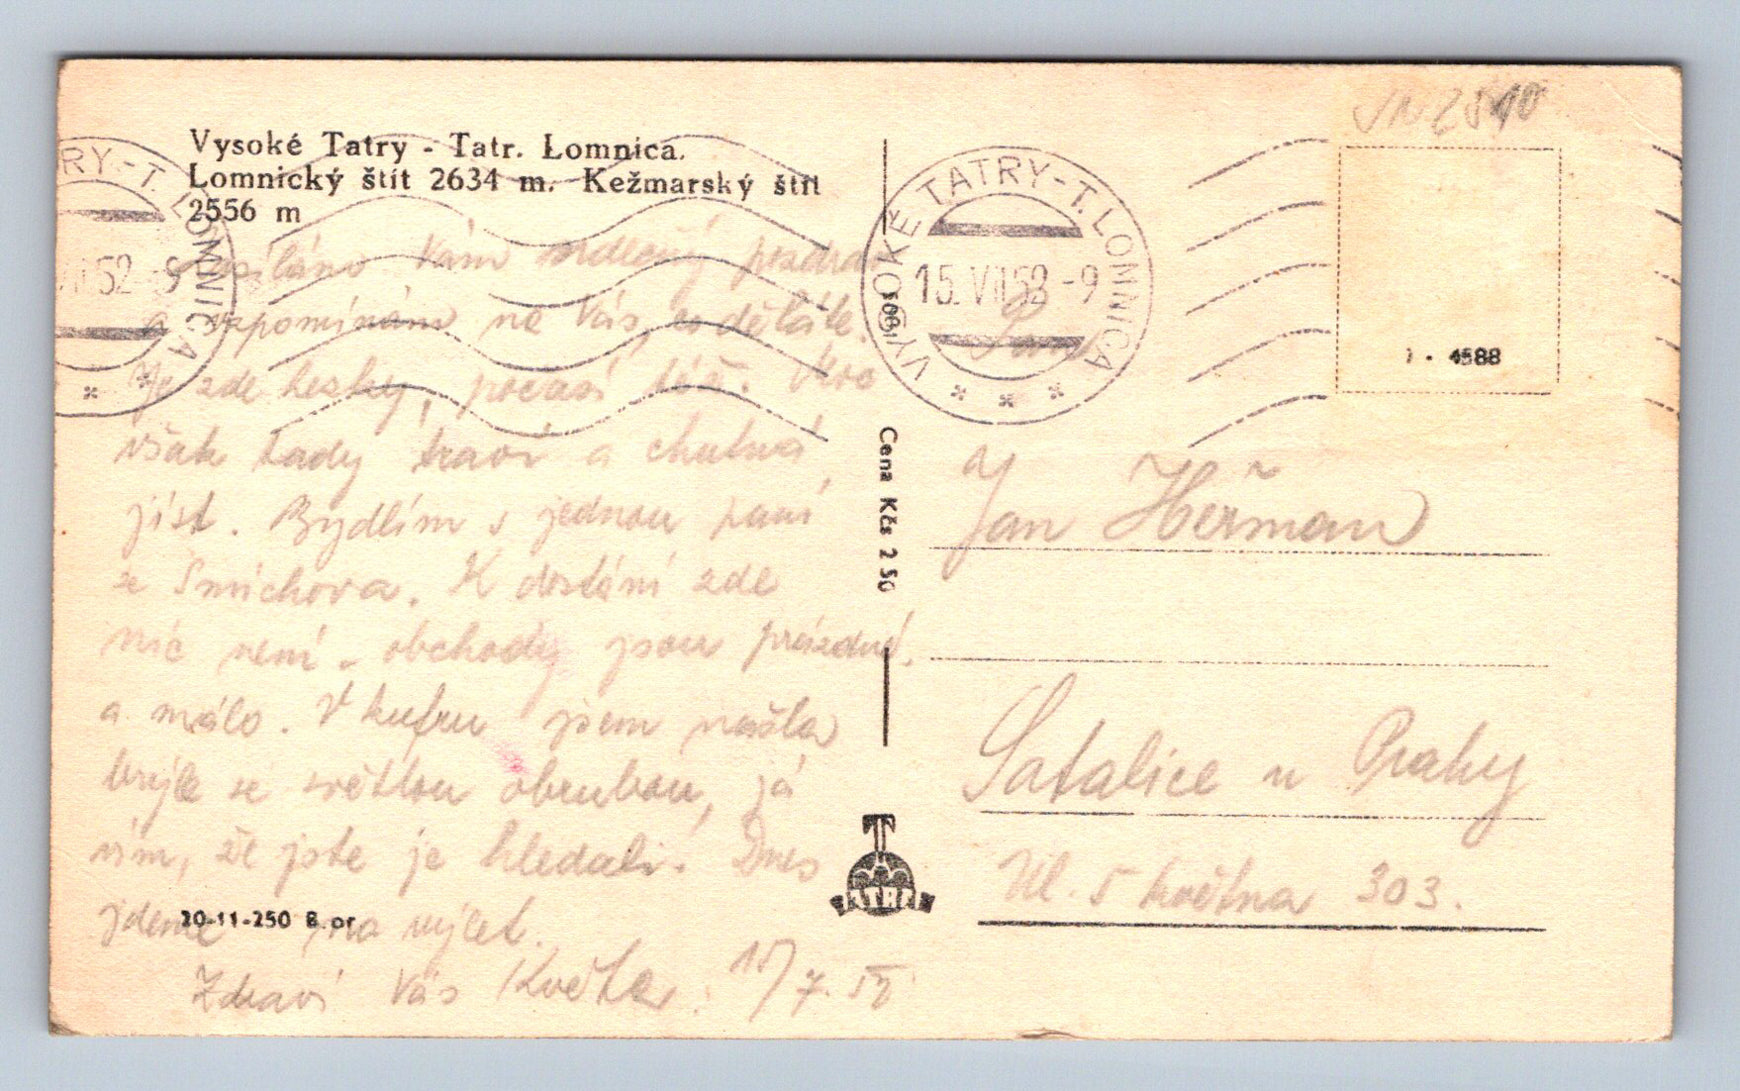 Vysoké Tatry - Tatr. Lomnica.
Lomnický štít 2634 m. Kežmarský štít
2556 m
RY - T. LOMNICA
VII 52 -9
Vám srdečný pozdrav
a vzpomínám na Vás, co děláte.
Je zde hezky, počasí též.
však tady tráví a chutná
jíst. Bydlím s jednou paní
ze Smíchova. K dostání zde
nic není - obchody jsou prázdné.
a málo. V kufru jsem našla
brýle se světlou obrubou, já
vím, že jste je hledali. Dnes
jdeme na výlet.
20-11-250 B. or
Zdraví Vás Květa. 15/7. 52
VYSOKÉ TATRY - T. LOMNICA
15. VII 52 -9
Cena Kčs 2 50
TATRA
1 - 4588
Pan
Jan Heřman
Satalice u Prahy
Ul. 5 května 303.